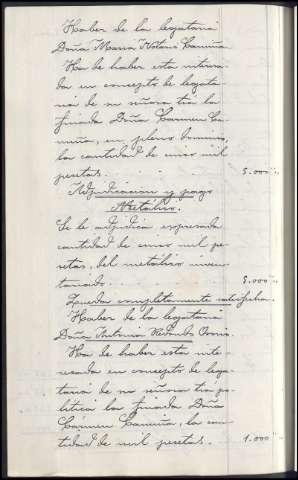 Haber de la legataria
Doña Maria Notario Camuña.
Ha de haber esta intere-
sada en concepto de legata-
ria de su señora tia la
finada Doña Carmen Ca-
muña, en pleno dominio,
la cantidad de cinco mil
pesetas. 5.000
Adjudicacion y pago
Metálico.
Se le adjudica expresada
cantidad de cinco mil pe-
setas, del metálico inven-
tariado. . . 5.000
Queda completamente satisfecha.
Haber de la legataria
Doña Antonia Redondo Osorio.
Ha de haber esta inte-
resada en concepto de lega-
taria de su señora tia po-
lítica la finada Doña
Cármen Camuña, la can-
tidad de mil pesetas. 1.000